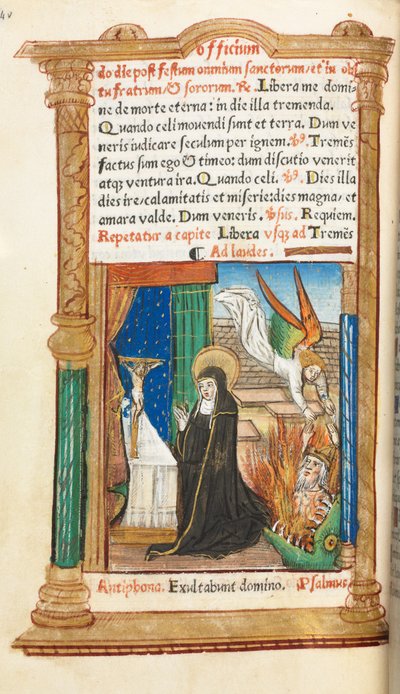 officium
do die post festum omnium sanctorum/et in obi
tu fratrum/& sororum. ℞. Libera me domi-
ne de morte eterna: in die illa tremenda.
Quando celi mouendi sunt et terra. Dum ve
neris iudicare seculum per ignem. ℣. Tremẽs
factus sum ego & timeo: dum discutio venerit
atqꝫ ventura ira. Quando celi. ℣. Dies illa
dies ire/calamitatis et miserie: dies magna/et
amara valde. Dum veneris. ℣sus. Requiem.
Repetatur a capite Libera vsqꝫ ad Tremẽs
⸿ Ad laudes.
Antiphona. Exultabunt domino. Psalmus